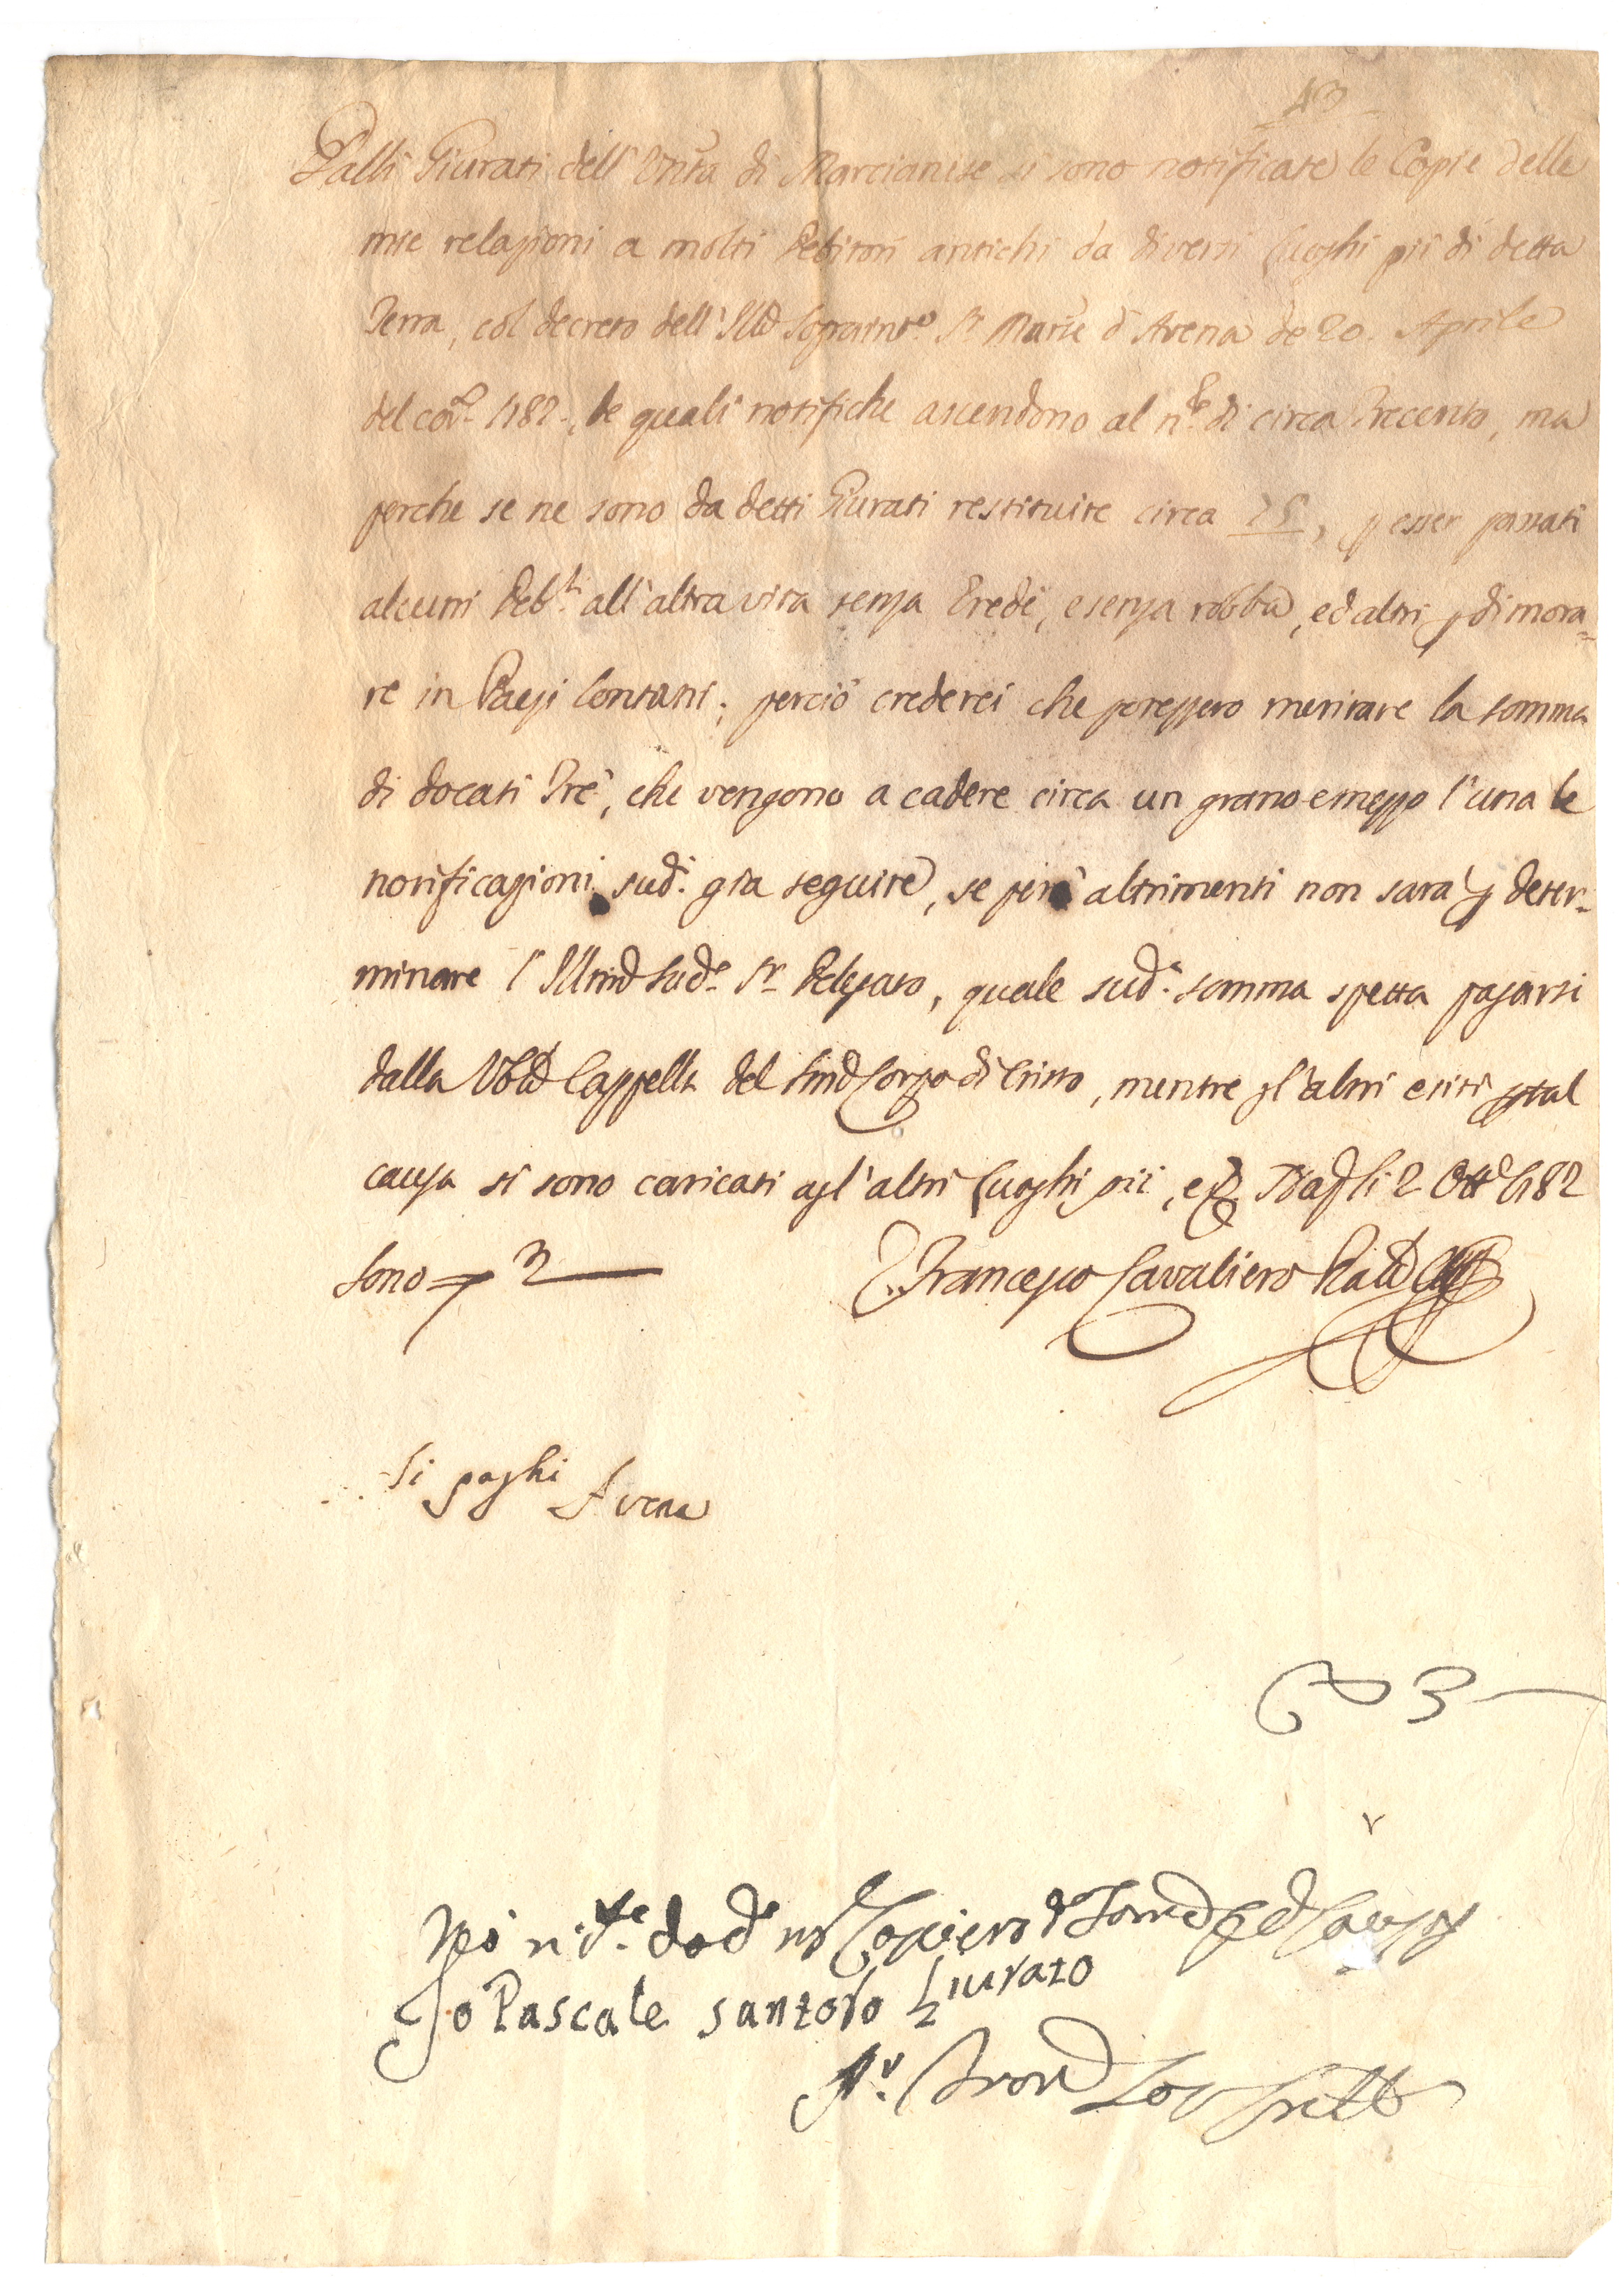 43
Dalli Giurati dell'Unità di Marcianise si sono notificate le Copie delle
mie relazioni a molti Debitori antichi da diversi Luoghi pii di detta
Terra, col decreto dell'Ill.º Sopraint.º S.r March.e d'Avena de 20. Aprile
del cor.e 1782., le quali notifiche ascendono al n.º di circa Trecento, ma
perche se ne sono da detti Giurati restituite circa 75, p esser passati
alcuni Deb.ri all'altra vita senza Eredi, e senza robba, ed altri p dimora=
re in Paesi lontani; perciò crederei che potessero meritare la somma
di docati Tre, che vengono a cadere circa un grano e mezzo l'una le
notificazioni sud.e già seguite, se però altrimenti non sarà p deter=
minare l'Ill.mo sud.o S.r Delegato, quale sud.a somma spetta pagarsi
dalla Cappella del SS.mo Corpo di Cristo, mentre gl'altri esiti p tal
causa si sono caricati agl'altri Luoghi pii, e p li 2 Ott.e 1782
Sono 3
Francesco Cavaliero
Si paghi Avena
3
Io Pascale santoro Giurato